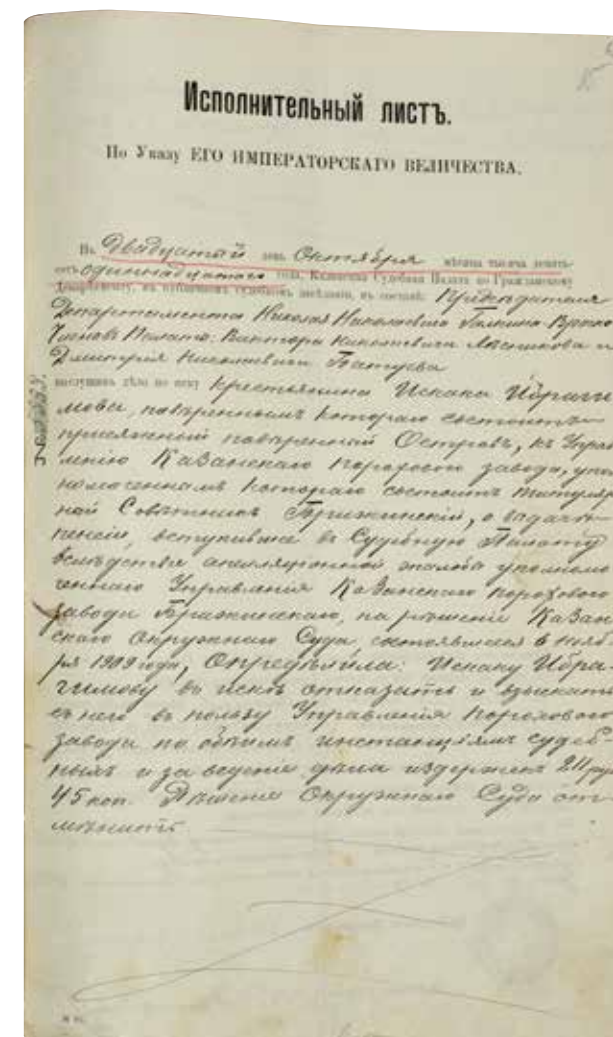 Исполнительный листъ.
По Указу ЕГО ИМПЕРАТОРСКАГО ВЕЛИЧЕСТВА.
Въ Двадцатый день Октября мѣсяца тысяча девять-
сотъ одиннадцатаго года, Казанская Судебная Палата по Гражданскому
Департаменту, въ публичномъ судебномъ засѣданіи, въ составѣ: Предсѣдателя
Департамента Николая Николаевича Галкина-Враско
Членовъ Палаты: Виктора Николаевича и
Дмитрія Николаевича
выслушавъ дѣло по иску крестьянина Исхака Ибраги
мова, повѣреннымъ котораго состоитъ
присяжный повѣренный Островъ, къ Управ
ленію Казанскаго порохового завода, упол
номоченнымъ котораго состоитъ титуляр
ный Совѣтникъ Бржизинскій, о выдачѣ
пенсіи, вступившее въ Судебную Палату
вслѣдствіе апелляціонной жалобы уполномо
ченнаго Управленія Казанскаго порохового
завода, на рѣшеніе Казан
скаго Окружнаго Суда, состоявшееся 6 нояб
ря 1909 года, Опредѣлила: Исхаку Ибра-
гимову въ искѣ отказать и взыскать
съ него въ пользу Управленія порохового
завода по обѣимъ инстанціямъ судеб
ныхъ и за веденіе дѣла издержекъ 211 руб
45 коп. Рѣшеніе Окружнаго Суда от-
мѣнить